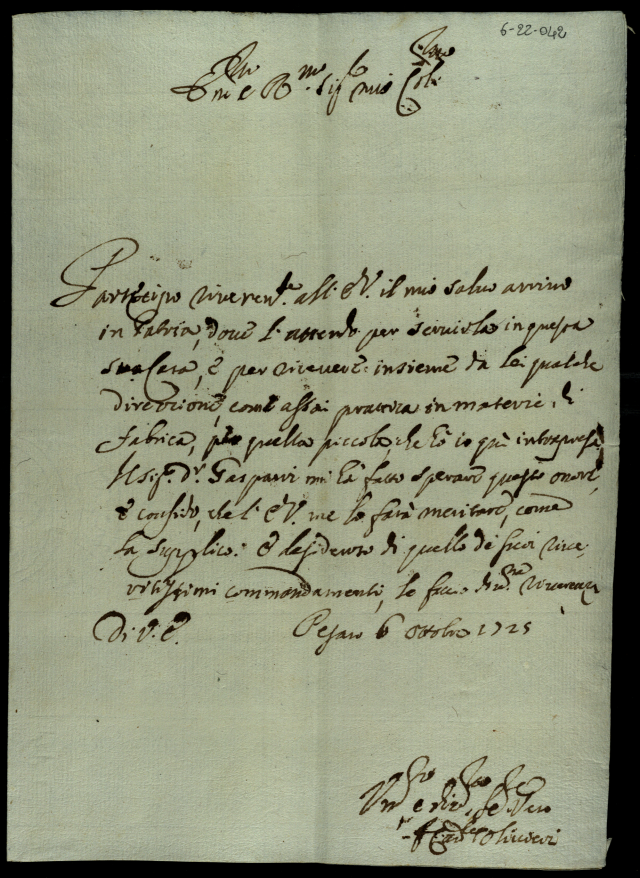 6-22-042
Em.e R.mo Sig.r mio
Partecipo riverent.e all'E.V. il mio salvo arrivo
in Patria, dove l'attendo per servirla in questa
sua Casa, e per ricevere insieme da lei qualche
direzzione, come assai prattica in materie di
fabrica, per quella piccola, che hò io quì intrapresa.
Il Sig.r D.r Gasparri mi hà fatto sperare questo onore,
e confido, che l'E.V. me lo farà meritare, come
la supplico. E desideroso di quello de suoi rive-
ritissimi commandamenti, le faccio riverenza
Di V.E. Pesaro 6 Ottobre 1725
Olivieri